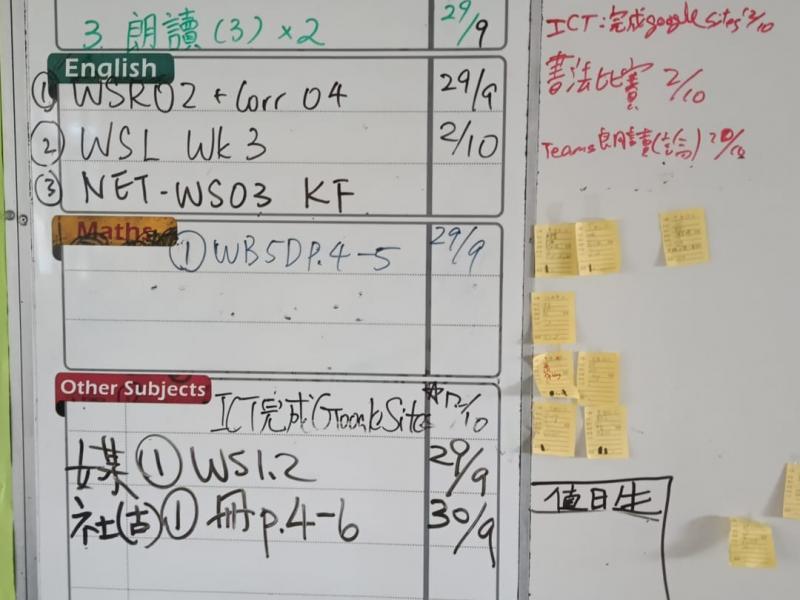 3. 朗讀(3)×2 29/9
English
① WSR02 + Corr 04 29/9
② WSL Wk 3 2/10
③ NET-WS03 KF
Maths
① WB5D P.4-5 29/9
Other Subjects
ICT完成Google Sites 12/10
① WS1.2 29/9
社(古)① 冊p.4-6 30/9
ICT:完成google Sites /10
書法比賽 2/10
Teams朗讀
值日生